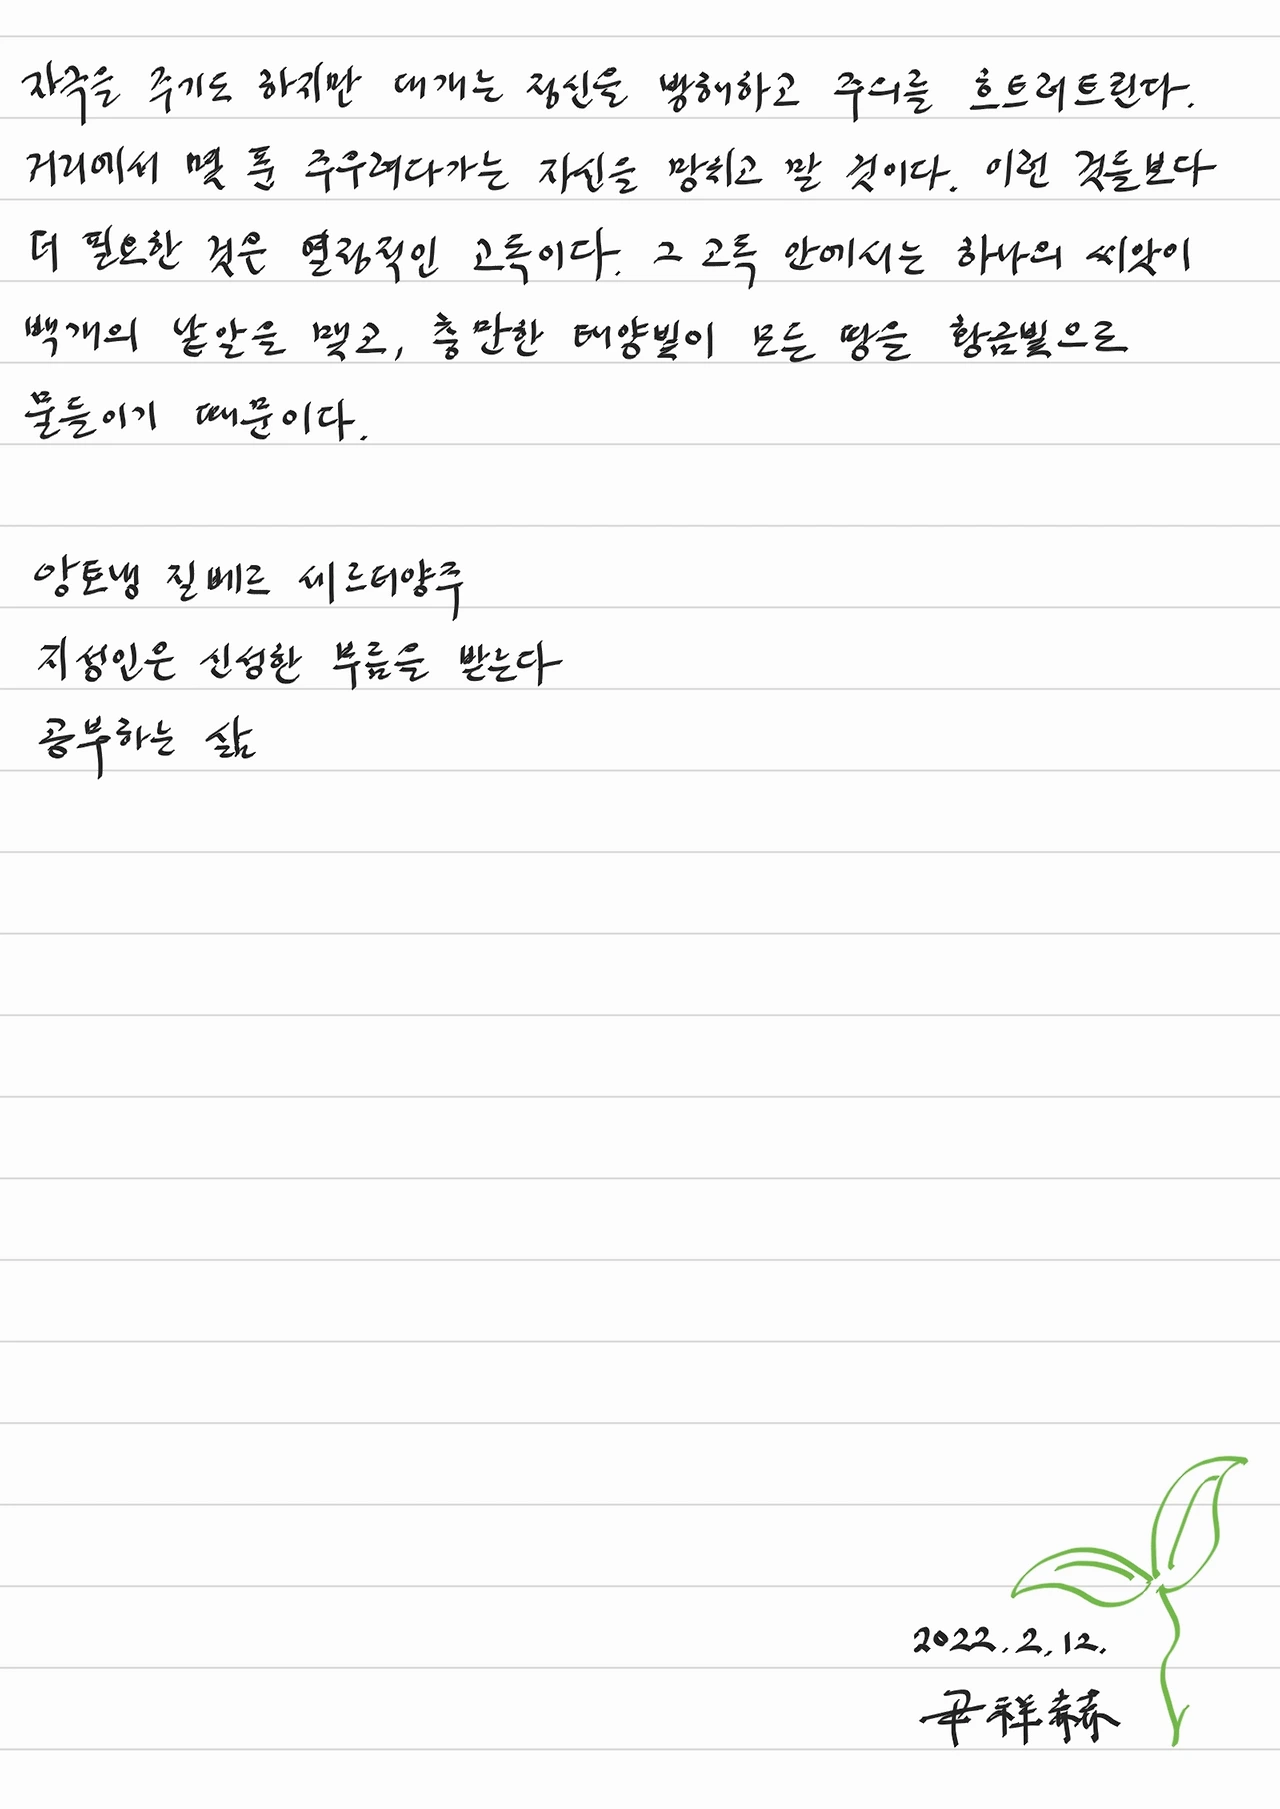 자극을 주기도 하지만 대개는 정신을 방해하고 주의를 흐트러트린다.
거리에서 몇 푼 주우려다가는 자신을 망치고 말 것이다. 이런 것들보다
더 필요한 것은 열정적인 고독이다. 그 고독 안에서는 하나의 씨앗이
백개의 낱알을 맺고, 충만한 태양빛이 모든 땅을 황금빛으로
물들이기 때문이다.
앙토냉 질베르 세르티양주
지성인은 신성한 부름을 받는다
공부하는 삶
2022.2.12.
尹祥赫